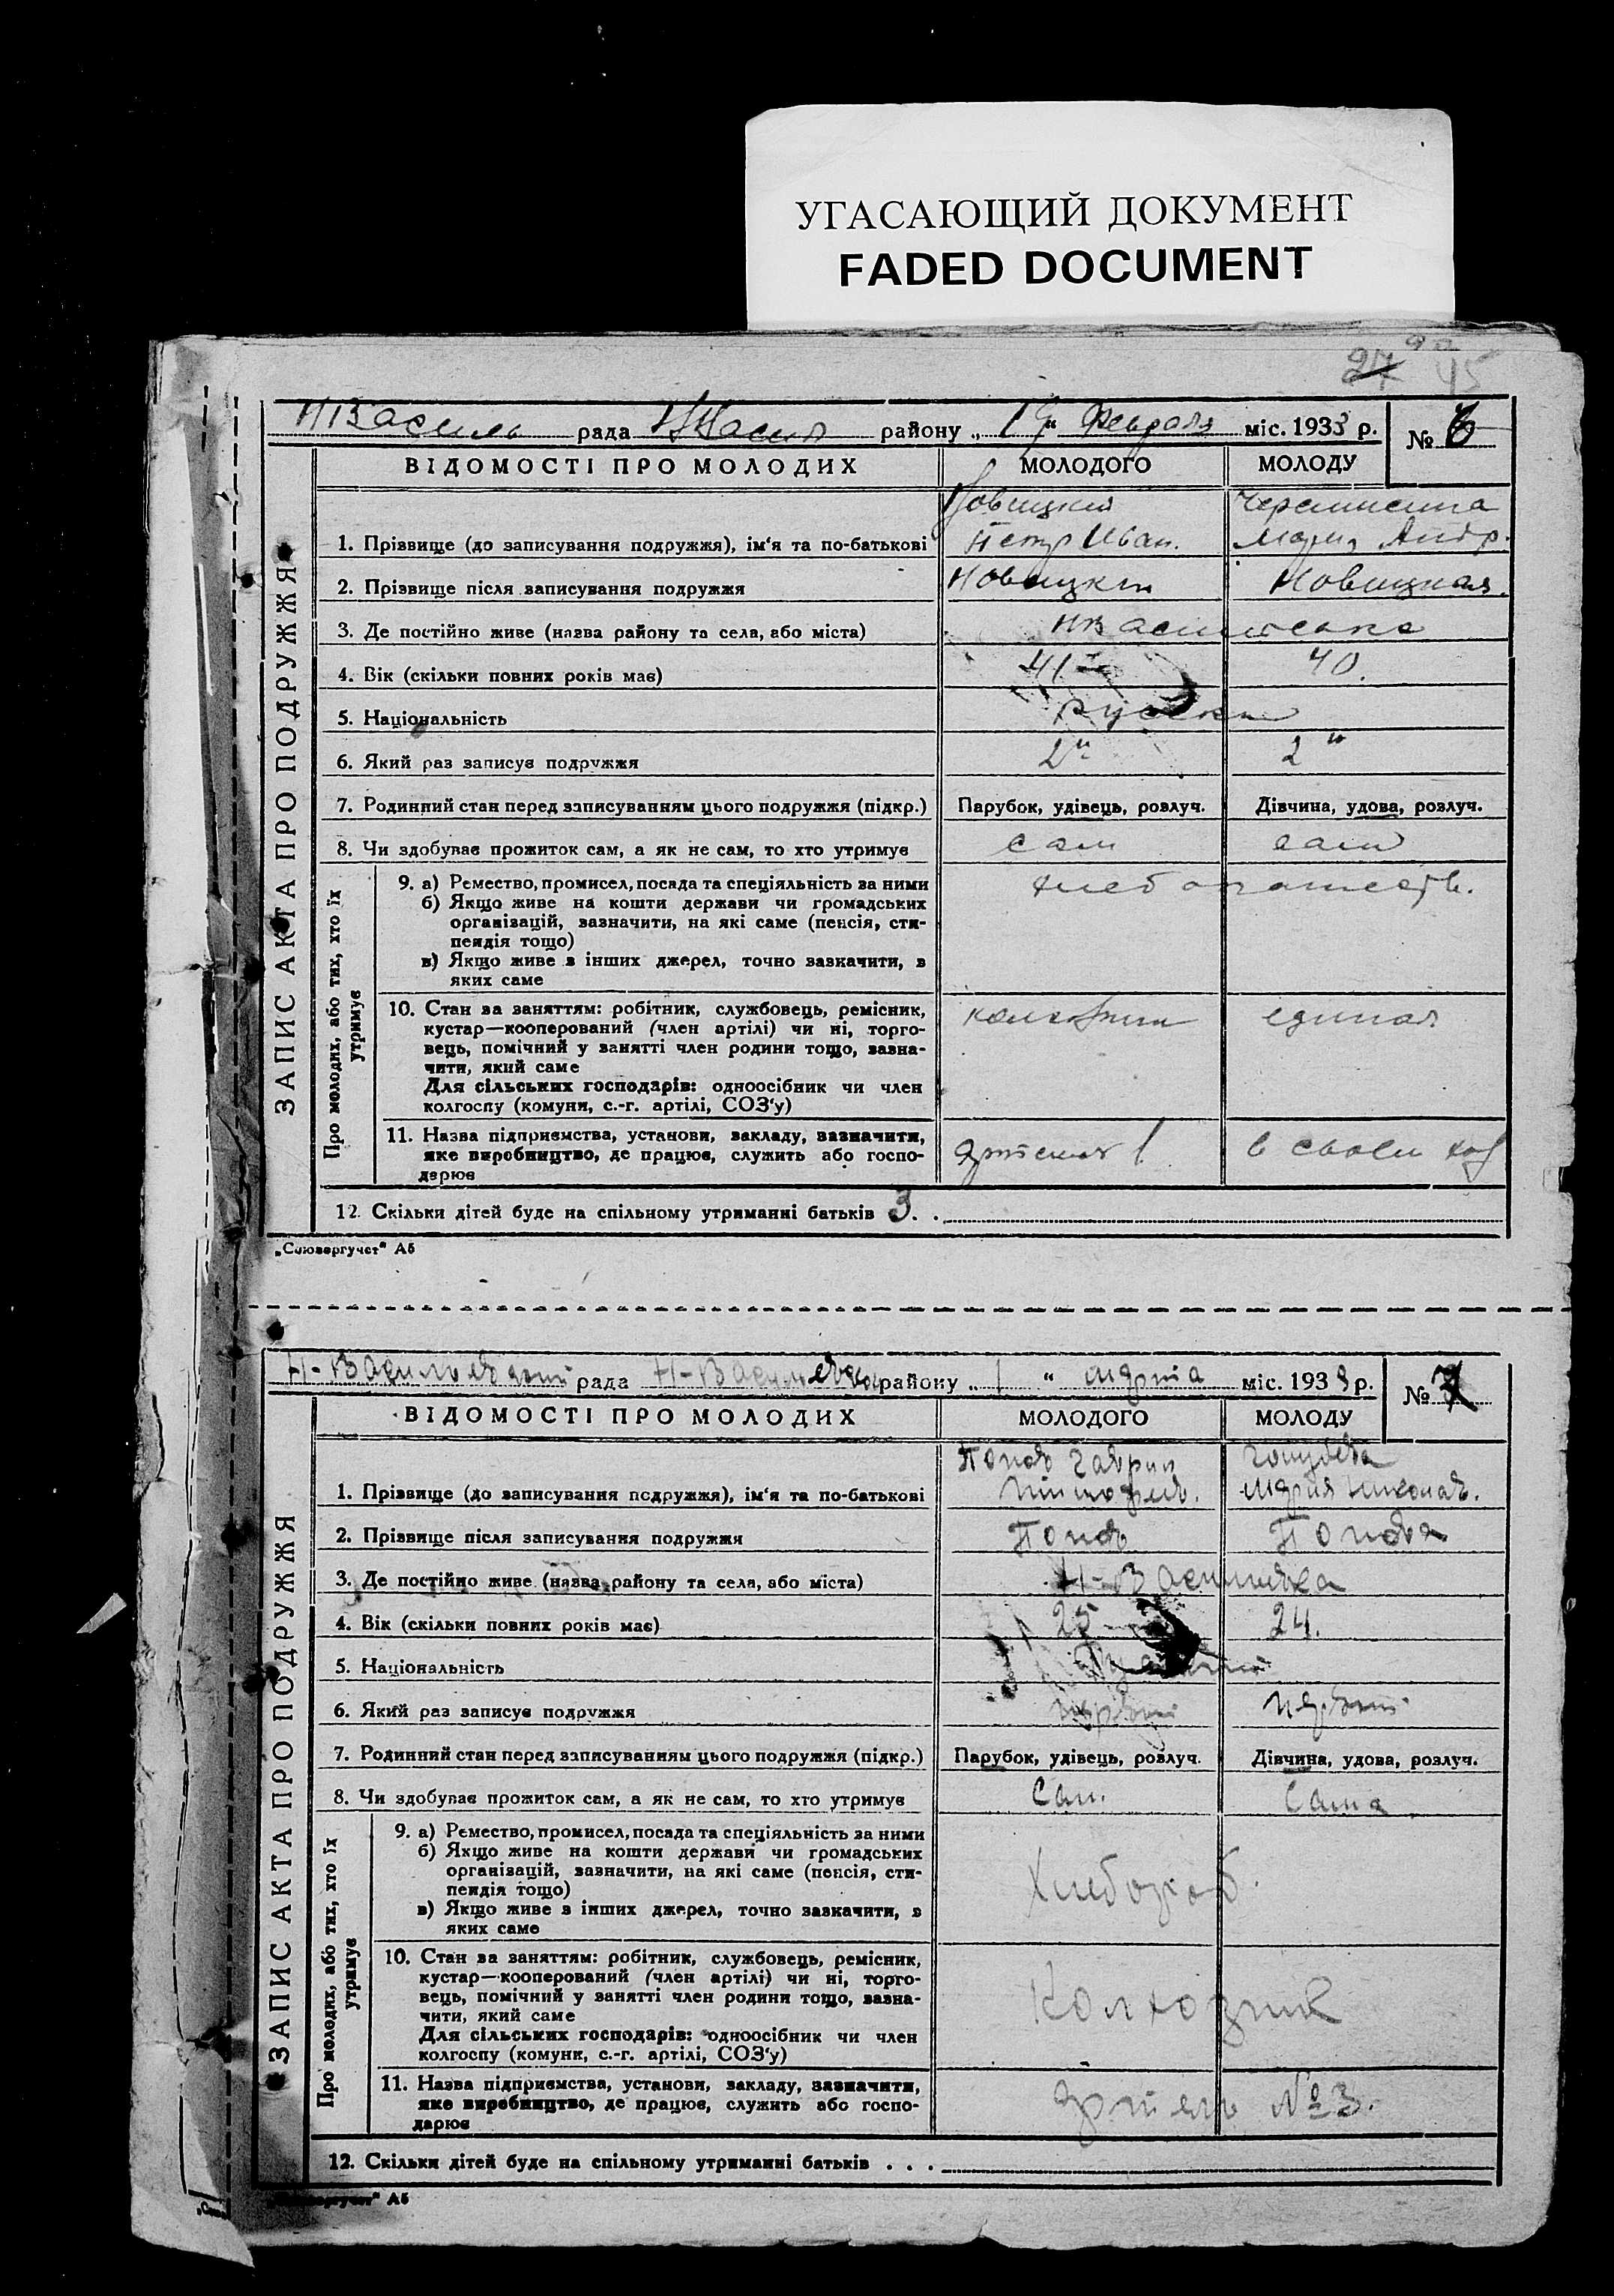 УГАСАЮЩИЙ ДОКУМЕНТ
FADED DOCUMENT
27 45
НВасиль рада НВасил району „19“ февраля міс. 1933 р. № 6
ВІДОМОСТІ ПРО МОЛОДИХ МОЛОДОГО МОЛОДУ
ЗАПИС АКТА ПРО ПОДРУЖЖЯ
Новицкий
1. Прізвище (до записування подружжя), ім'я та по-батькові Петр Иван. Мария Андр.
2. Прізвище після записування подружжя Новицкий Новицкая.
3. Де постійно живе (назва району та села, або міста)
4. Вік (скільки повних років має) 41 40.
5. Національність Руские
6. Який раз записує подружжя 2й 2й
7. Родинний стан перед записуванням цього подружжя (підкр.) Парубок, удівець, розлуч. Дівчина, удова, розлуч.
8. Чи здобуває прожиток сам, а як не сам, то хто утримує сам сам
Про молодих, або тих, хто їх утримує
9. а) Ремество, промисел, посада та спеціяльність за ними хлебопашеств.
б) Якщо живе на кошти держави чи громадських
організацій, зазначити, на які саме (пенсія, сти-
пендія тощо)
в) Якщо живе з інших джерел, точно зазначити, з
яких саме
10. Стан за заняттям: робітник, службовець, ремісник, колхозник единол
кустар—кооперований (член артілі) чи ні, торго-
вець, помічний у занятті член родини тощо, зазна-
чити, який саме
Для сільських господарів: одноосібник чи член
колгоспу (комуни, с.-г. артілі, СОЗ'у)
11. Назва підприємства, установи, закладу, зазначити,
яке виробництво, де працює, служить або госпо- артель 1 в своем хоз
дарює
12. Скільки дітей буде на спільному утриманні батьків 3.
„Союзоргучет“ А5
Н-Васильевский рада Н-Васильевка району „1“ марта міс. 1933 р. № 7
ВІДОМОСТІ ПРО МОЛОДИХ МОЛОДОГО МОЛОДУ
ЗАПИС АКТА ПРО ПОДРУЖЖЯ
Попов Гаврил Голубева
1. Прізвище (до записування подружжя), ім'я та по-батькові Тимофеев. Мария Николаев.
2. Прізвище після записування подружжя Попов Попова
3. Де постійно живе (назва району та села, або міста) Н-Васильевка
4. Вік (скільки повних років має) 25 24.
5. Національність
6. Який раз записує подружжя первый первый
7. Родинний стан перед записуванням цього подружжя (підкр.) Парубок, удівець, розлуч. Дівчина, удова, розлуч.
8. Чи здобуває прожиток сам, а як не сам, то хто утримує Сам. Сама
Про молодих, або тих, хто їх утримує
9. а) Ремество, промисел, посада та спеціяльність за ними
б) Якщо живе на кошти держави чи громадських
організацій, зазначити, на які саме (пенсія, сти- Хлебороб.
пендія тощо)
в) Якщо живе з інших джерел, точно зазначити, з
яких саме
10. Стан за заняттям: робітник, службовець, ремісник,
кустар—кооперований (член артілі) чи ні, торго-
вець, помічний у занятті член родини тощо, зазна- Колхозник
чити, який саме
Для сільських господарів: одноосібник чи член
колгоспу (комуни, с.-г. артілі, СОЗ'у)
11. Назва підприємства, установи, закладу, зазначити,
яке виробництво, де працює, служить або госпо- Артель №3.
дарює
12. Скільки дітей буде на спільному утриманні батьків . . .
„Союзоргучет“ А5